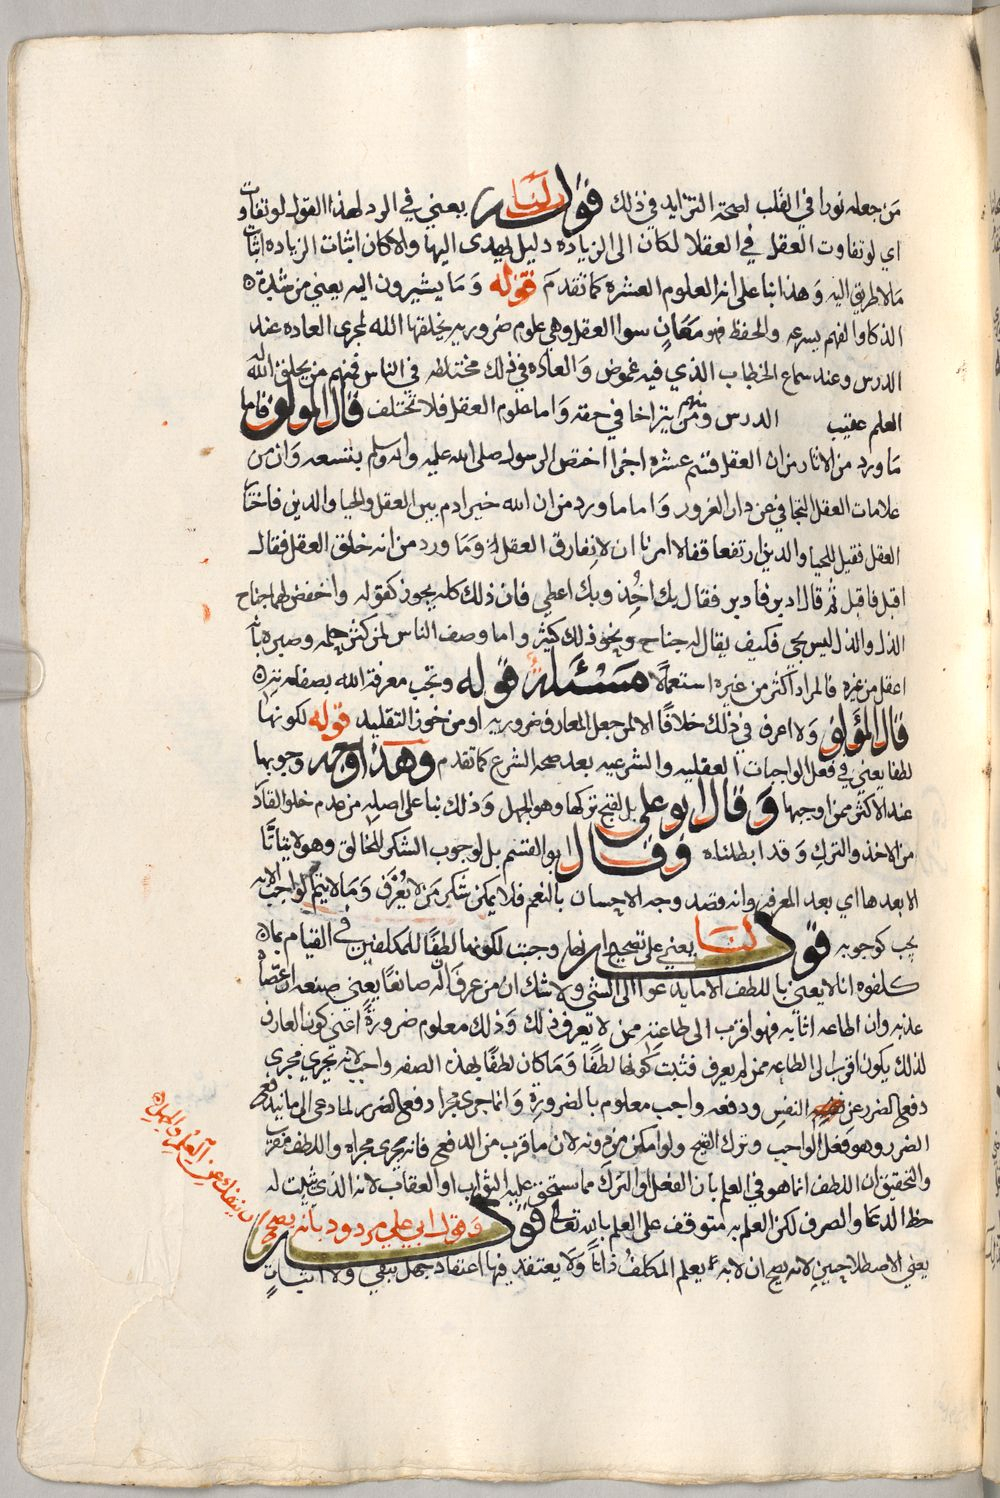 من جعله نورا في القلب لصحة التزايد في ذلك قوله لنا يعني في الرد لهذا القول لو تفاوت
اي لو تفاوت العقل في العقلا لكان الى الزياده دليل يهدى اليها والا كان اثبات الزياده اثبات
ما لا طريق اليه وهذا بنا على انه العلوم العشره كما تقدم قوله وما يشيرون اليه يعني من شدة
الذكا والفهم بسرعه والحفظ فهو معان سوا العقل وهي علوم ضروريه يخلقها الله لمجرى العاده عند
الدرس وعند سماع الخطاب الذي فيه غموض والعاده في ذلك مختلطه في الناس فمنهم من يخلق الله له
العلم عقيب الدرس ومنهم من يتراخا في حقه واما علوم العقل فلا تختلف قال المولف فاما
ما ورد من الاثار من ان العقل قسم عشره اجزا اختص الرسول صلى الله عليه واله وسلم بتسعه وان من
علامات العقل التجافي عن دار الغرور واما ما ورد من ان الله خير ادم بين العقل والحيا والدين فاختار
العقل فقيل للحيا والدين ارتفعا فقالا امرنا ان لا نفارق العقل وما ورد من انه خلق العقل فقال له
اقبل فاقبل ثم قال ادبر فادبر فقال بك اخذ وبك اعطي فان ذلك كله يجوز كقوله واخفض لهما جناح
الذل والذل ليس بحي فكيف يقال له جناح ونحو ذلك كثير واما وصف الناس لمن كثر حلمه وصبره بانه
اعقل من غيره فالمراد اكثر من غيره استعمالا مسئلة قوله وتجب معرفة الله بصفاته
قال المولف ولا اعرف في ذلك خلافا الا لمن جعل المعارف ضروريه او من جوز التقليد قوله لكونها
لطفا يعني في فعل الواجبات العقليه والشرعيه بعد صحة الشرع كما تقدم وهذا وجه وجوبها
عند الاكثر ممن اوجبها وقال ابو على بل لقبح تركها وهو الجهل وذلك بنا على اصله من عدم خلو القادر
من الاخذ والترك وقد ابطلناه وقال ابو القسم بل لوجوب الشكر للخالق وهو لا يتاتا
الا بعدها اي بعد المعرفه وانه قصد وجه الاحسان بالنعم فلا يمكن شكر من لا يعرف وما لا يتم الواجب الا به
يجب كوجوبه قوله لنا يعني على تصحيح انها وجبت لكونها لطفا للمكلفين في القيام بما
كلفوه انا لا يعني باللطف الا ما يدعو الى الشي ولا شك ان من عرف ان له صانعا يعني صنعه ان عصاه
عذبه وان اطاعه اثابه فهو اقرب الى طاعته ممن لا يعرف ذلك وذلك معلوم ضرورة اعني كون العارف
لذلك يكون اقرب الى الطاعه ممن لم يعرف فثبت كونها لطفا وما كان لطفا بهذه الصفه واجب لانه يجري مجرى
دفع الضرر عن النفس ودفعه واجب معلوم بالضرورة وانما جرى مجرا دفع الضرر لما دعى الى ما يندفع به
الضرر وهو فعل الواجب وترك القبيح ولو امكن من دونه لان ما قرب من الدافع فانه يجرى مجراه واللطف مقرب
والتحقيق ان اللطف انما هو في العلم بان الفعل او الترك مما يستحق عليه الثواب او العقاب لانه الذي يثبت له
حظ الدعا والصرف لكن العلم به متوقف على العلم بالله تعالى قوله وقول ابي علي مردود بانه يصح
ان ينفك عن العلم والجهل
يعني الاصطلاحيين لانه يصح ان لا يعلم المكلف ذاتا ولا يعتقد فيها اعتقاد جهل بنفي ولا اثبات